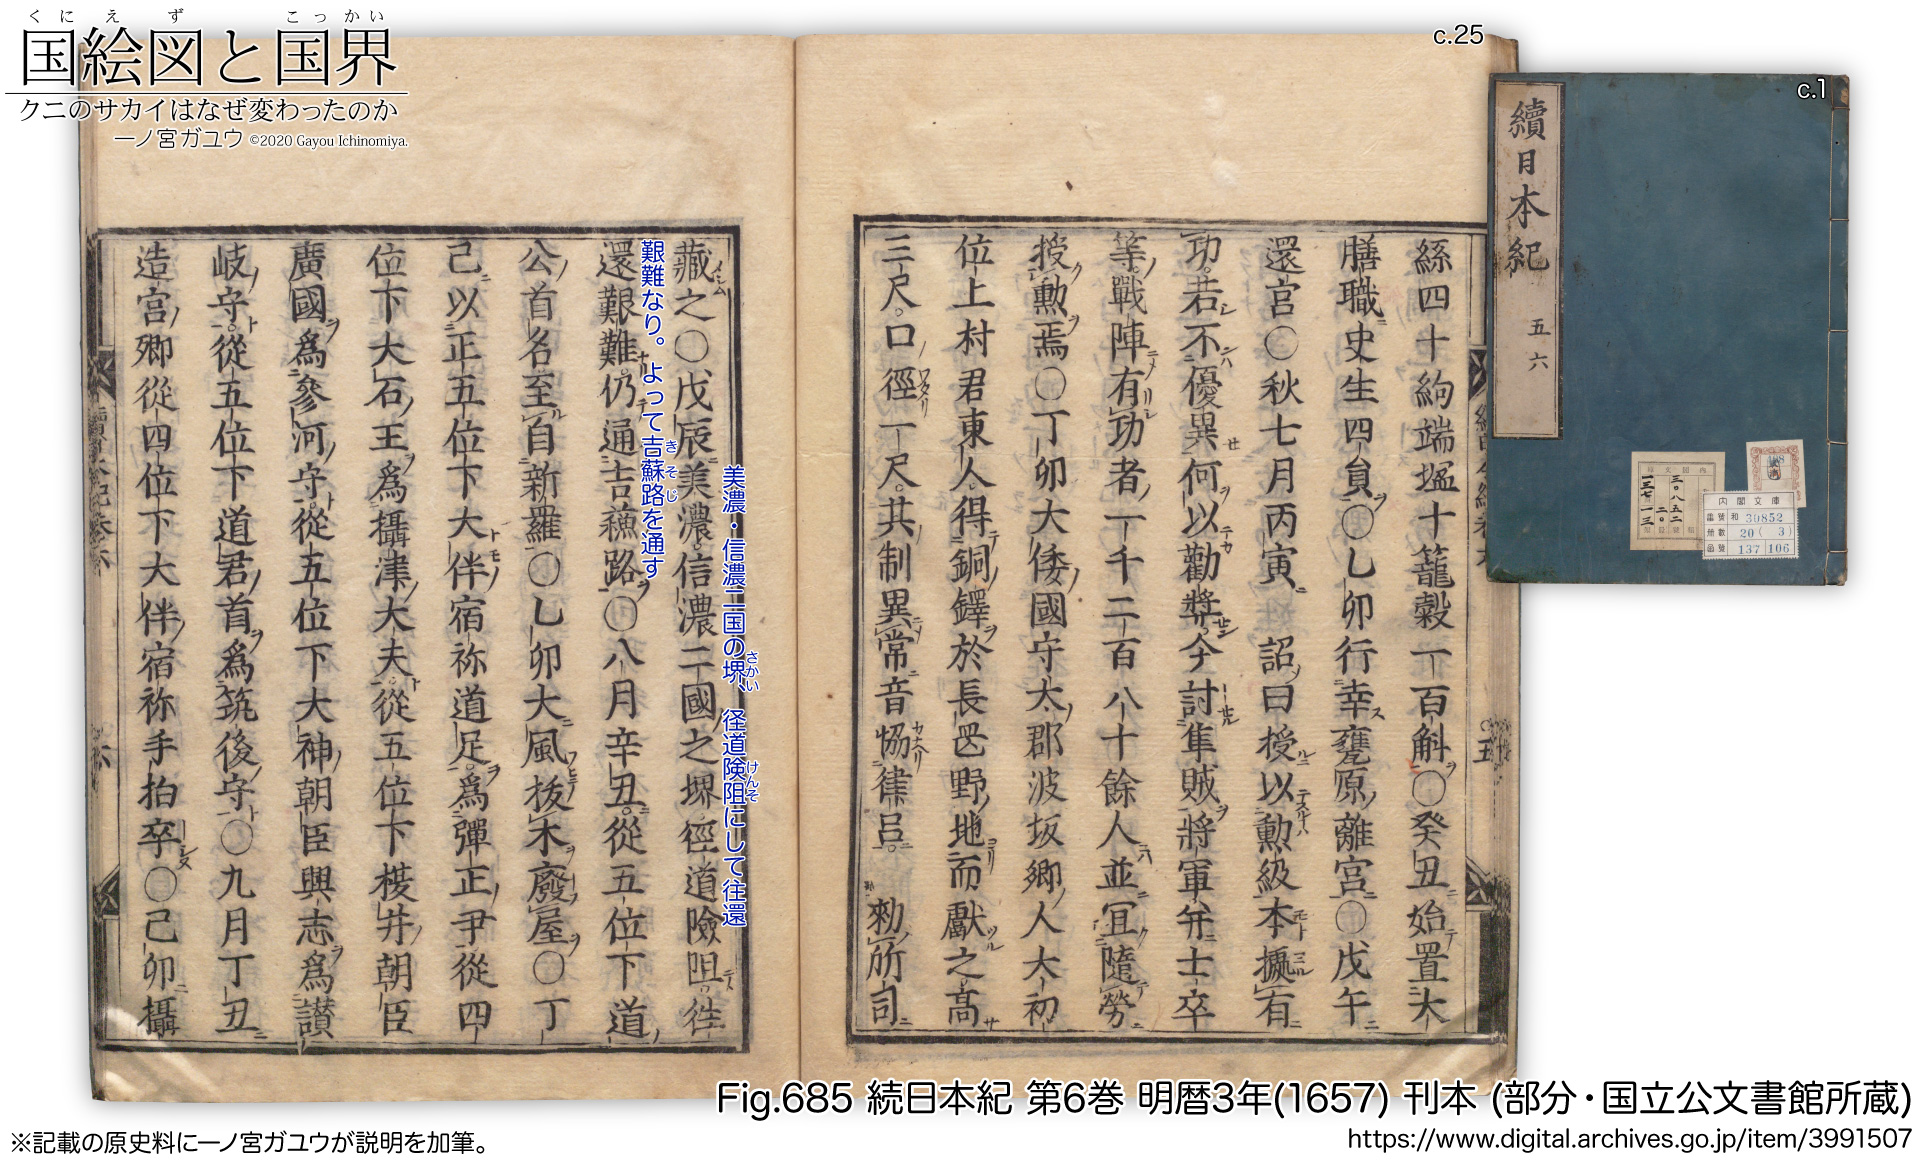 くにえず　こっかい
国絵図と国界
クニのサカイはなぜ変わったのか
一ノ宮ガユウ ©2020 Gayou Ichinomiya.
c.25
c.1
續日本紀 五六
内閣文庫
番號 和 30852
冊數 20( 3)
函號 137 106
絲四十絇端塩十籠穀一百斛〇癸丑始置大
膳職史生四負〇乙卯行幸甕原離宮〇戊午
還宮〇秋七月丙寅 詔曰授以勲級本據有
功若不優異何以勸奬今討隼賊將軍并士卒
等戰陣有功者一千二百八十餘人並冝隨勞
授勲焉〇丁卯大倭國守太郡波坂郷人大初
位上村君東人得銅鐸於長岡野地而獻之高
三尺口徑一尺其制異常音恊律呂 勑所司
藏之〇戊辰美濃信濃二國之堺徑道險阻徃
還艱難仍通吉蘓路〇八月辛丑從五位下道
公首名至自新羅〇乙卯大風拔木廢屋〇丁
己以正五位下大伴宿祢道足爲彈正尹從四
位下大石王爲攝津大夫從五位下榎井朝臣
廣國爲參河守從五位下大神朝臣興志爲讃
岐守從五位下道君首爲筑後守〇九月丁丑
造宮卿從四位下大伴宿祢手拍卒〇己卯攝
美濃・信濃二国の堺、径道険阻にして往還
さかい けんそ
艱難なり。よって吉蘇路を通す
きそじ
Fig.685 続日本紀 第6巻 明暦3年(1657) 刊本 (部分・国立公文書館所蔵)
https://www.digital.archives.go.jp/item/3991507
※記載の原史料に一ノ宮ガユウが説明を加筆。